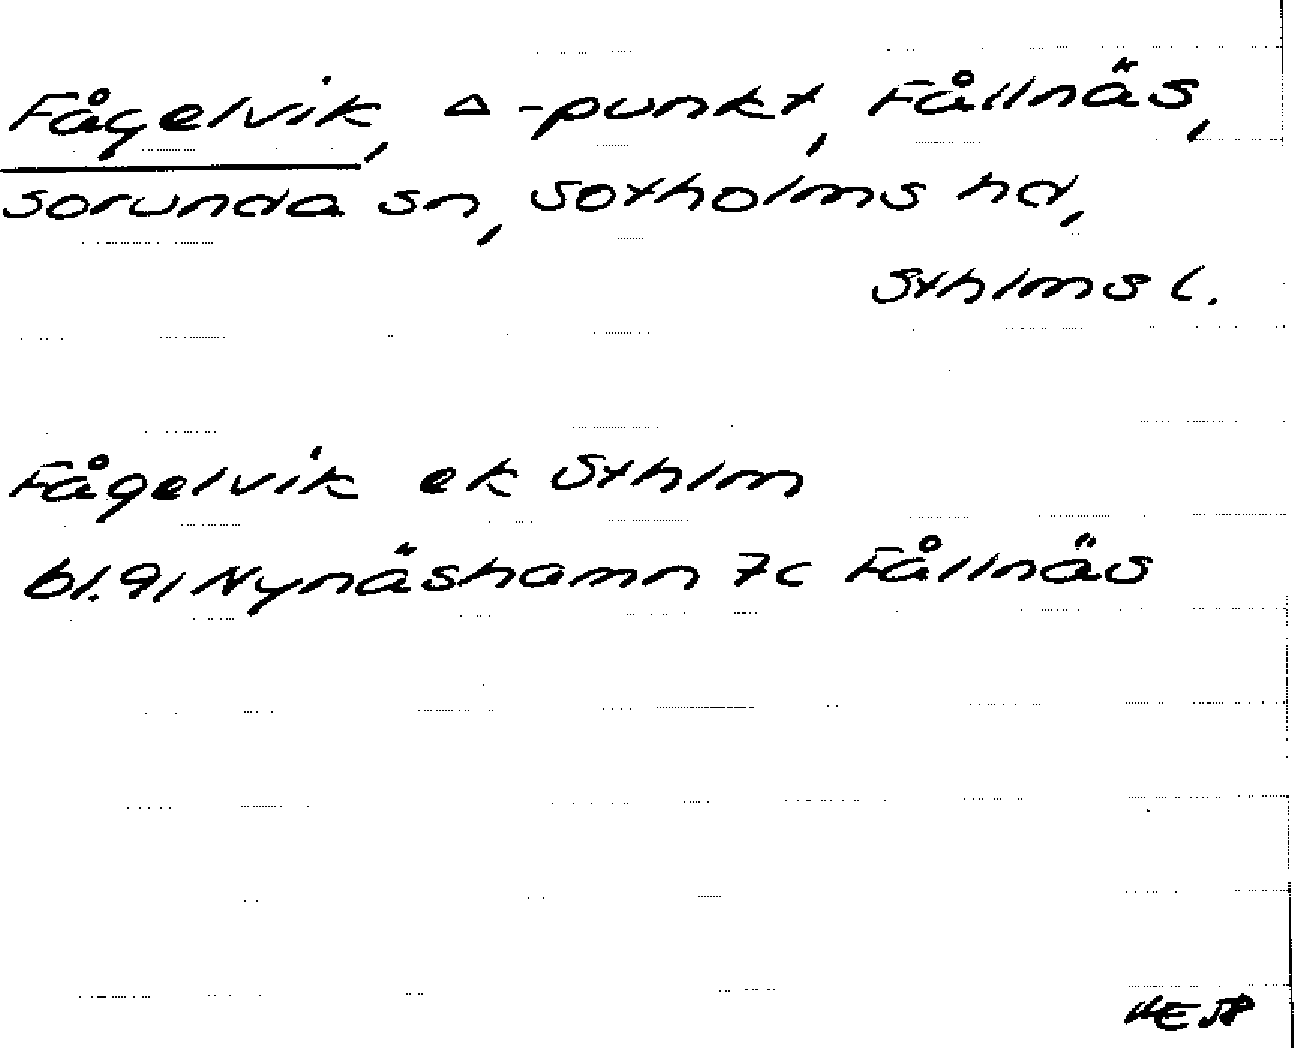 Fågelvik, △-punkt, Fållnäs,
Sorunda sn, Sotholms hd,
Sthlms l.
Fågelvik ek Sthlm
bl. 91 Nynäshamn 7c Fållnäs